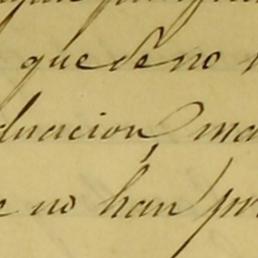 que de no
duacion, ma
e no han pr